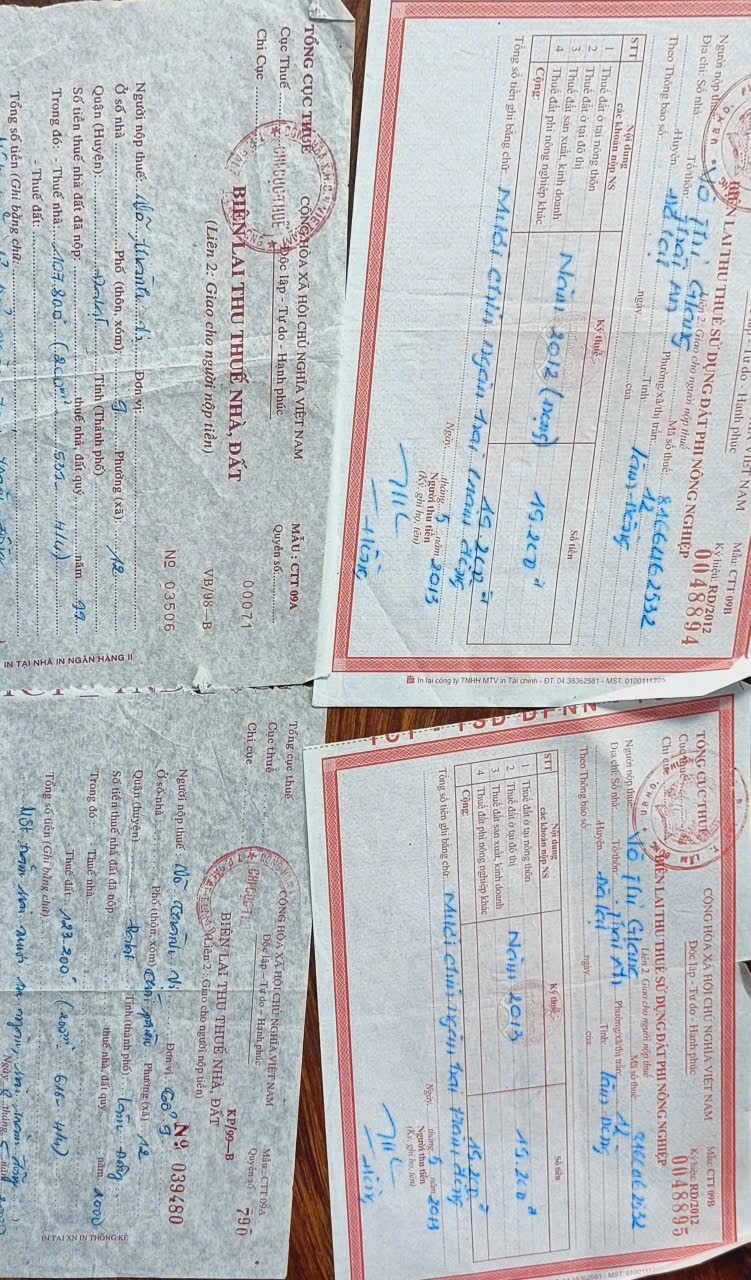 VIỆT NAM
Tự do - Hạnh phúc
Mẫu: CTT 09B
Ký hiệu: RD/2012
0048894
BIÊN LAI THU THUẾ SỬ DỤNG ĐẤT PHI NÔNG NGHIỆP
Liên 2: Giao cho người nộp thuế
Người nộp thuế: Võ Thị Giang Mã số thuế: 8166462532
Địa chỉ: Số nhà Tổ/thôn: Thái An Phường/xã/thị trấn: 12
Huyện Đà Lạt Tỉnh: Lâm Đồng
Theo Thông báo số: ngày của
STT Nội dung các khoản nộp NS Kỳ thuế Số tiền
1 Thuế đất ở tại nông thôn
2 Thuế đất ở tại đô thị Năm 2012 (nộp) 19.200đ
3 Thuế đất sản xuất, kinh doanh
4 Thuế đất phi nông nghiệp khác
Cộng: 19.200đ
Tổng số tiền ghi bằng chữ: Mười chín ngàn hai trăm đồng
Ngày tháng 5 năm 2013
Người thu tiền
(Ký, ghi họ, tên)
In tại công ty TNHH MTV in Tài chính - ĐT: 04.38362581 - MST: 0100111225
TỔNG CỤC THUẾ
Cục Thuế
Chi Cục
CỘNG HÒA XÃ HỘI CHỦ NGHĨA VIỆT NAM
Độc lập - Tự do - Hạnh phúc
MẪU: CTT 09A
Quyển số
00071
BIÊN LAI THU THUẾ NHÀ, ĐẤT
(Liên 2: Giao cho người nộp tiền)
VB/98-B
Nº 03506
Người nộp thuế: Đơn vị:
Ở số nhà Phố (thôn, xóm): 9 Phường (xã) 12
Quận (Huyện): Đalat Tỉnh (Thành phố)
Số tiền thuế nhà đất đã nộp: thuế nhà, đất quý năm 99
Trong đó: - Thuế nhà: 107.800đ
- Thuế đất:
Tổng số tiền (Ghi bằng chữ):
IN TẠI NHÀ IN NGÂN HÀNG II
TỔNG CỤC THUẾ
Cục thuế
Chi cục
CỘNG HÒA XÃ HỘI CHỦ NGHĨA VIỆT NAM
Độc lập - Tự do - Hạnh phúc
Mẫu: CTT 09B
Ký hiệu: RD/2012
0048895
BIÊN LAI THU THUẾ SỬ DỤNG ĐẤT PHI NÔNG NGHIỆP
Liên 2: Giao cho người nộp thuế
Người nộp thuế: Võ Thị Giang Mã số thuế:
Địa chỉ: Số nhà Tổ/thôn: Thái An Phường/xã/thị trấn: 12
Huyện Đà Lạt Tỉnh: Lâm Đồng
Theo Thông báo số: ngày của
STT Nội dung các khoản nộp NS Kỳ thuế Số tiền
1 Thuế đất ở tại nông thôn
2 Thuế đất ở tại đô thị Năm 2013 19.200đ
3 Thuế đất sản xuất, kinh doanh
4 Thuế đất phi nông nghiệp khác
Cộng: 19.200đ
Tổng số tiền ghi bằng chữ: Mười chín ngàn hai trăm đồng
Ngày tháng 5 năm 2013
Người thu tiền
(Ký, ghi họ, tên)
Tổng cục thuế
Cục thuế
Chi cục
CỘNG HÒA XÃ HỘI CHỦ NGHĨA VIỆT NAM
Độc lập - Tự do - Hạnh phúc
Mẫu: CTT 09A
Quyển số 790
BIÊN LAI THU THUẾ NHÀ, ĐẤT
KP/99-B
(Liên 2: Giao cho người nộp tiền)
Nº 039480
Người nộp thuế: Đơn vị:
Ở số nhà Phố (thôn, xóm) Phường (xã) 12
Quận (huyện) Đalat Tỉnh (thành phố) Lâm Đồng
Số tiền thuế nhà đất đã nộp thuế nhà, đất quý năm 2000
Trong đó: Thuế nhà
Thuế đất: 123.200đ
Tổng số tiền (Ghi bằng chữ):
Một trăm hai mươi ba ngàn, hai trăm đồng
IN TẠI XN IN THỐNG KÊ